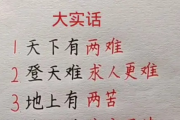 大实话
1天下有两难
2登天难求人更难
3地上有两苦